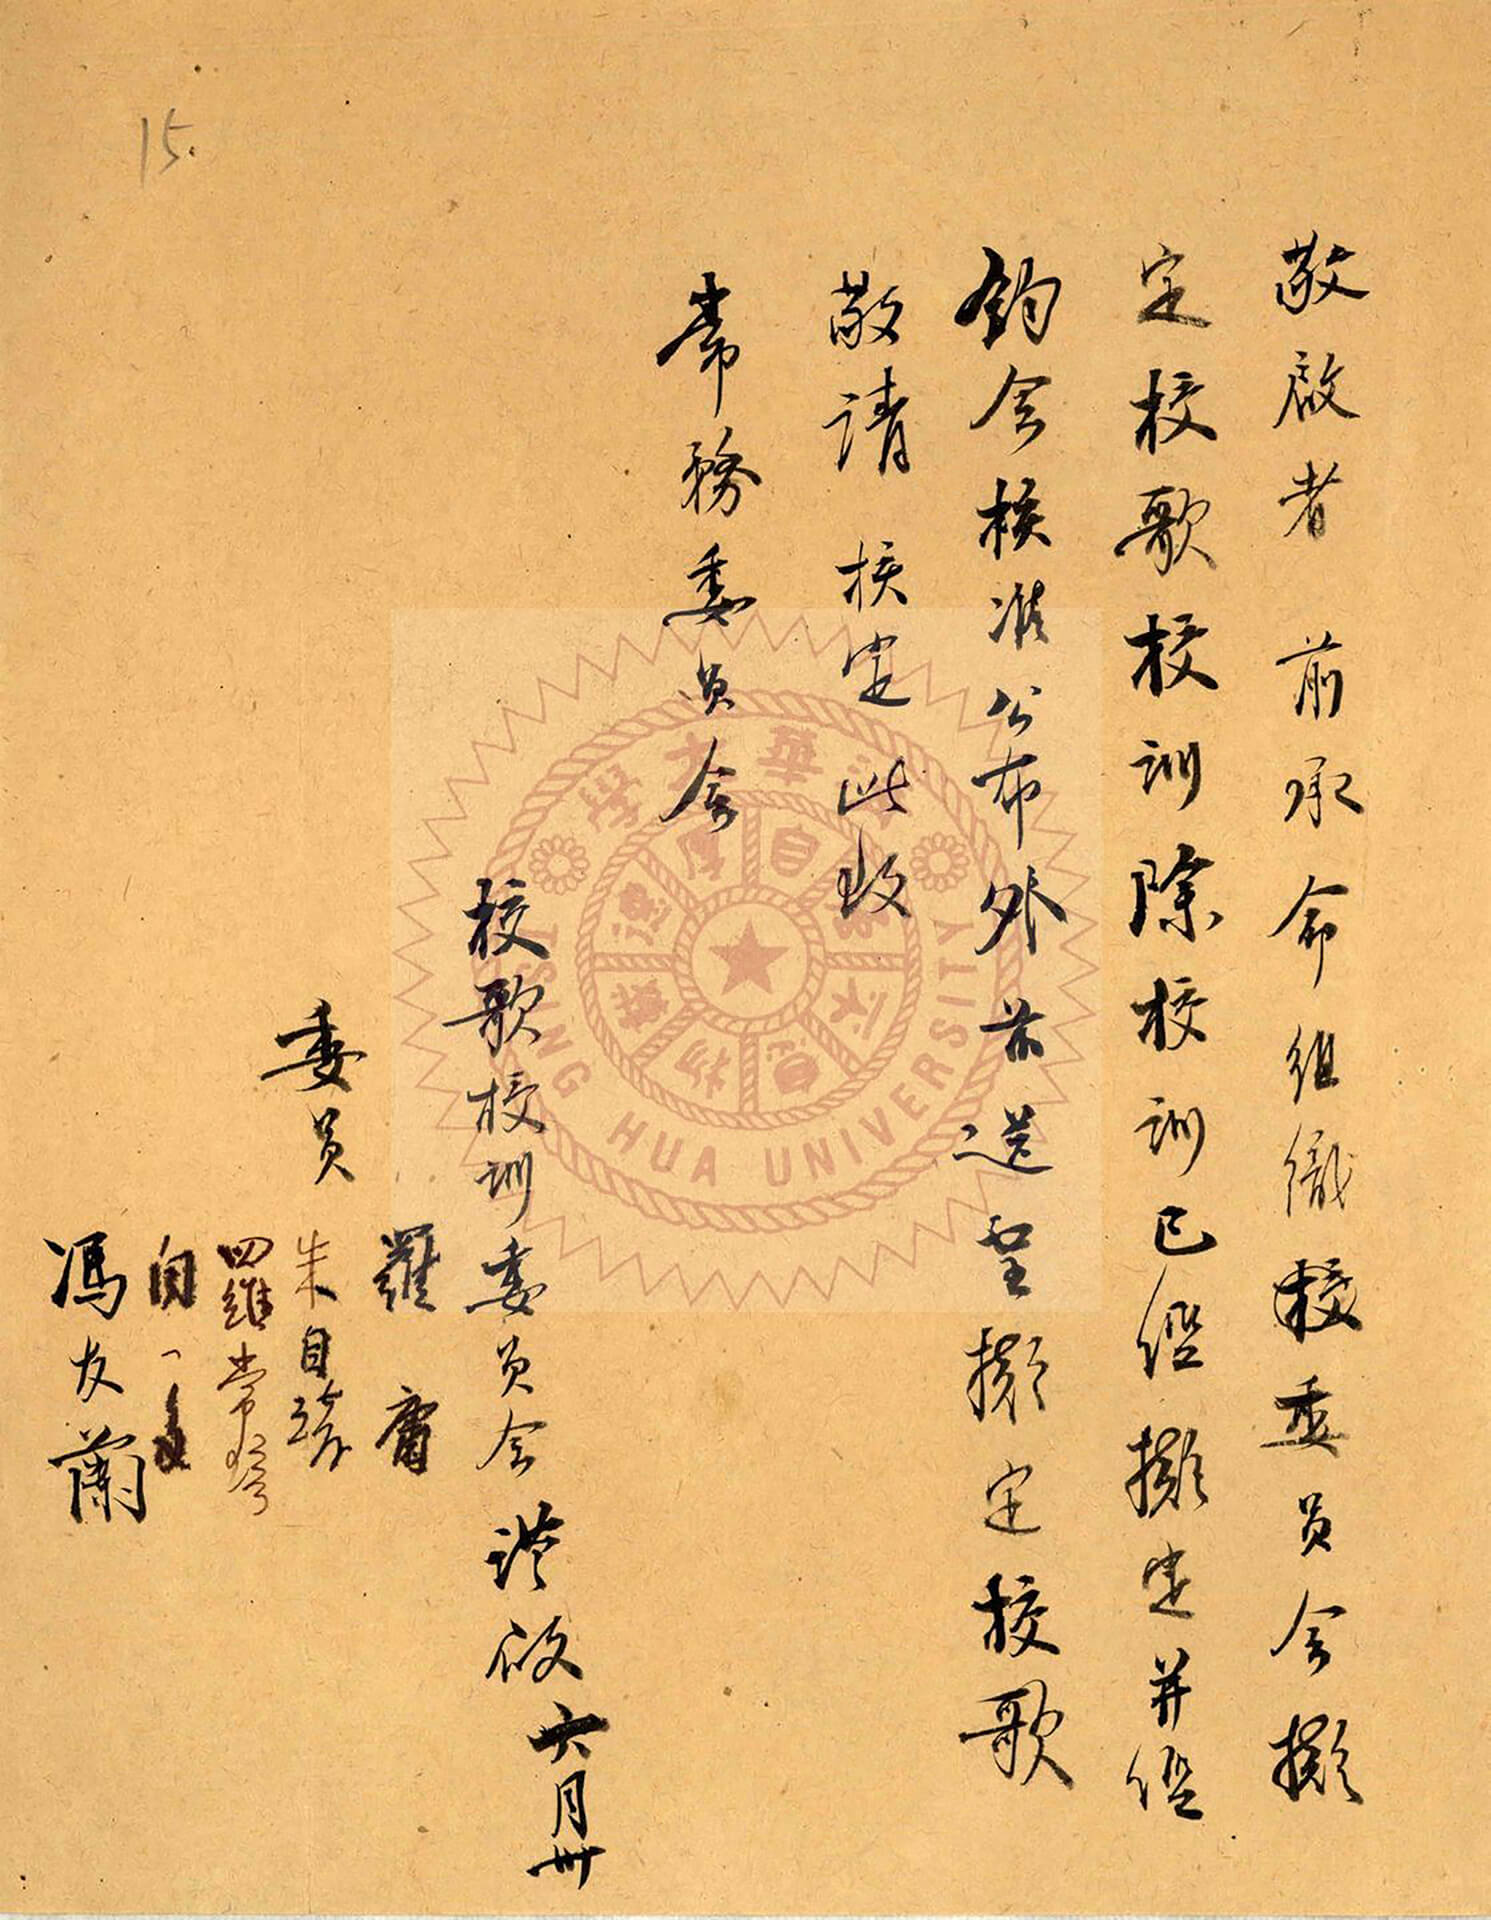 15.
敬啟者 前承命組織校委員會擬
定校歌校訓除校訓已經擬定并經
鈞会核准公布外茲送呈擬定校歌
敬請 核定 此致
常務委員会
校歌校訓委員会謹啟 六月卅
委員
羅庸
朱自清
羅常培
聞一多
馮友蘭
TSING HUA UNIVERSITY